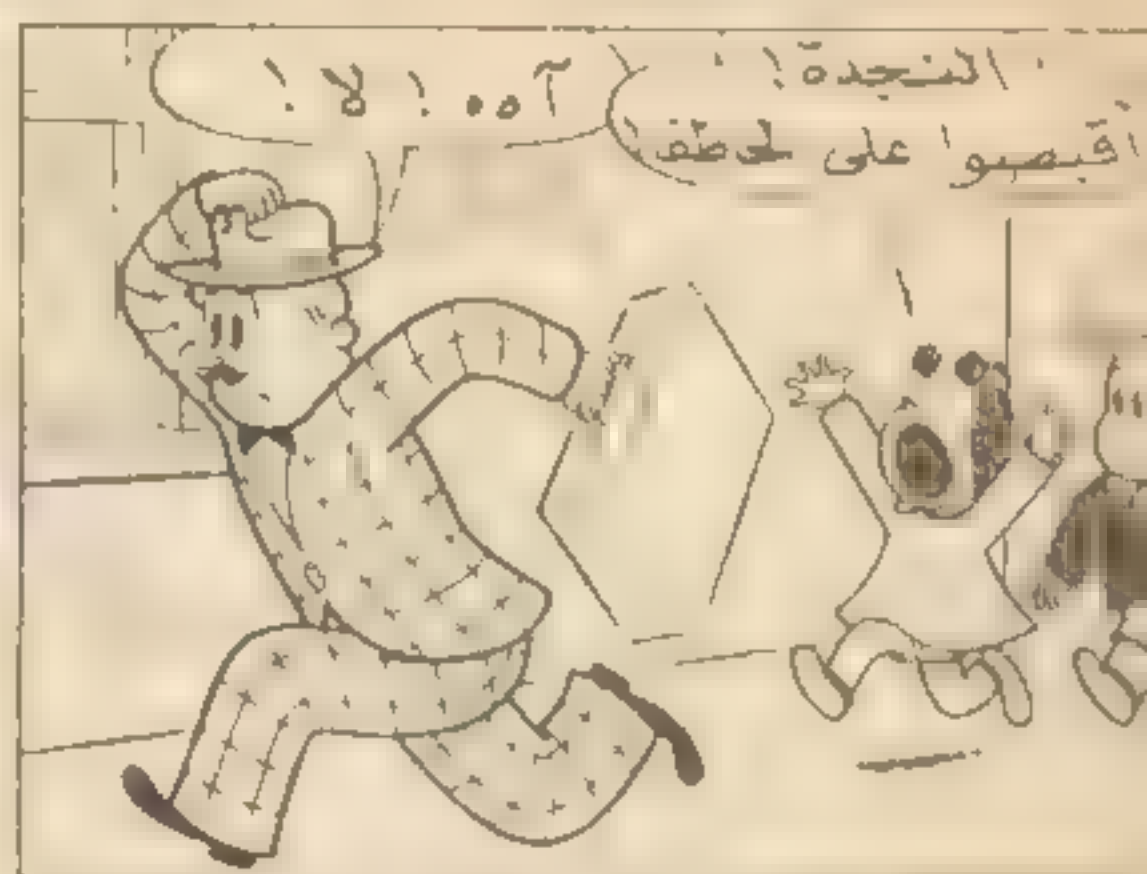 النجدة!
أقبصو على لخطف
آه ! لا !